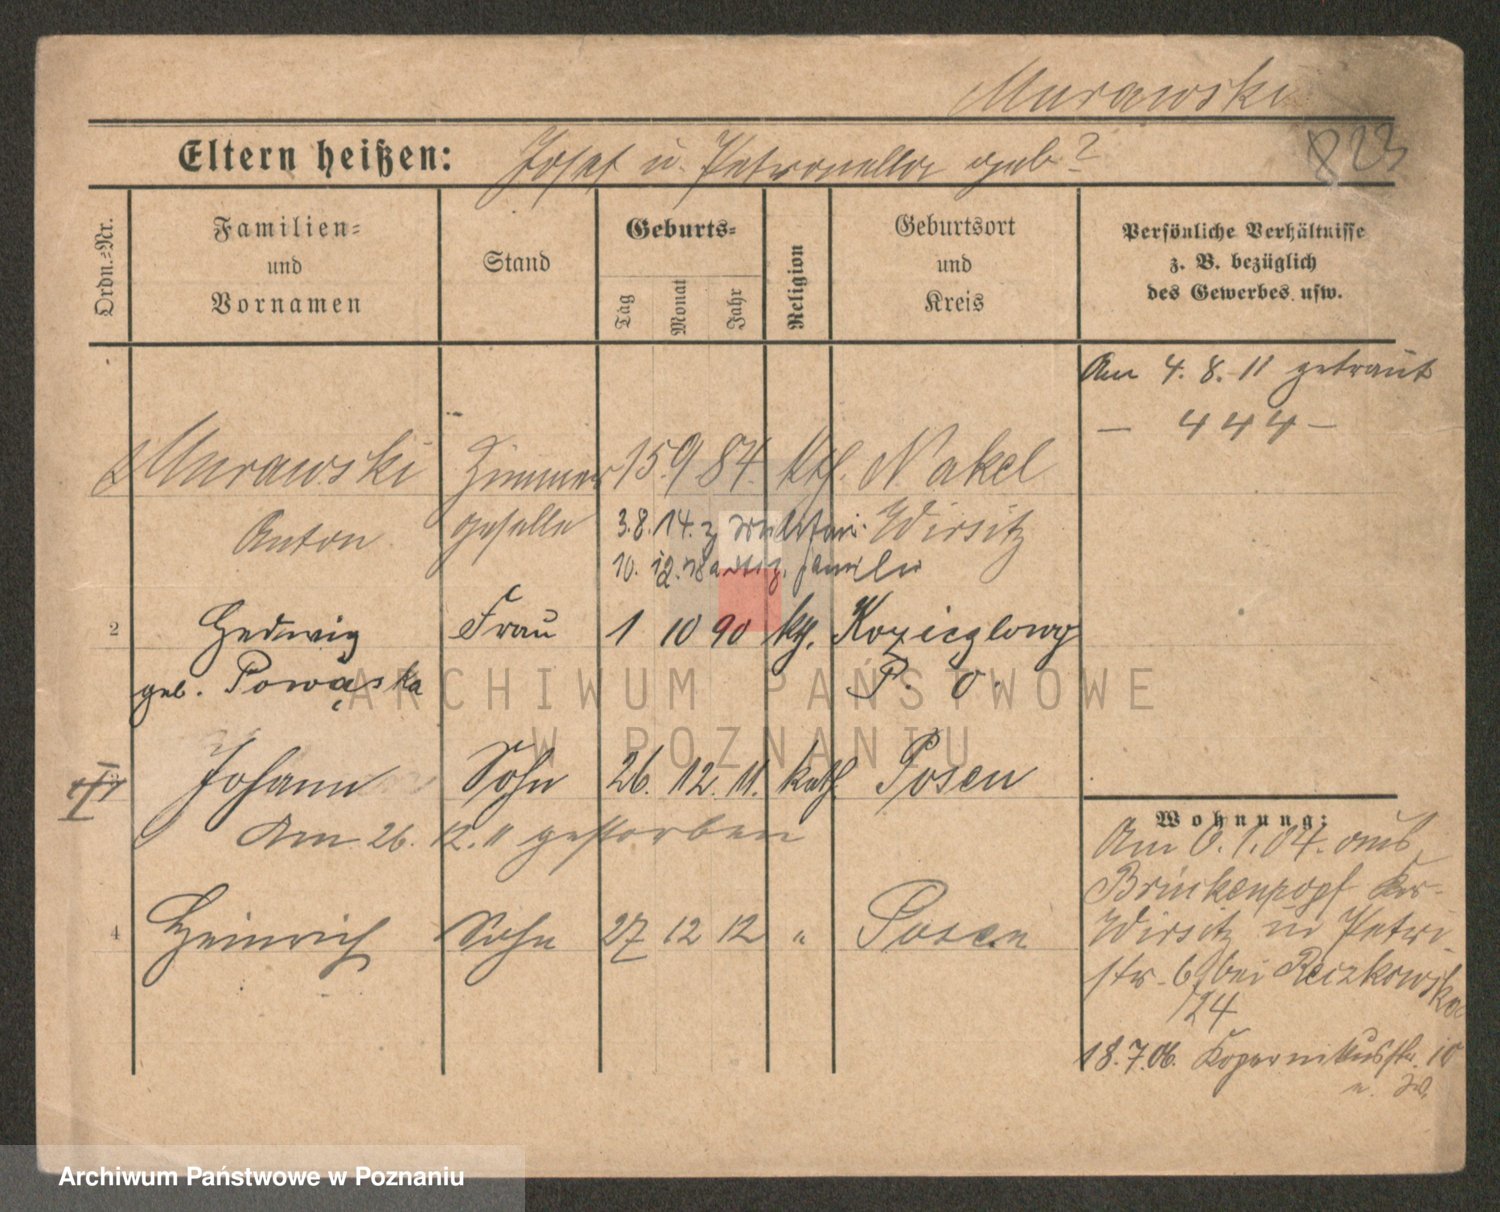 Murawski
823
Eltern heißen: Josef u. Petronella geb?
Ordn.=Nr.
Familien=
und
Vornamen
Stand
Geburts=
Tag
Monat
Jahr
Religion
Geburtsort
und
Kreis
Persönliche Verhältnisse
z. B. bezüglich
des Gewerbes usw.
Am 4. 8. 11 getraut
- 444 -
Murawski Zimmer 15 9 84. kth. Nakel
Anton geselle 3. 8. 14. z Militär. Wirsitz
10. 12. 18 z. Familie
2 Hedwig Frau 1 10 90 kth. Koziegłowy
geb. Powąska P. O.
Johann Sohn 26. 12. 11. kath. Posen
Am 26. 12. 11 gestorben
4 Heinrich Sohn 27 12 12 " Posen
Wohnung:
Am 6. 1. 04. aus
Brückenkopf Krs.
Wirsitz in Petri-
str. 6 bei Reczkowska
/24
18. 7. 06. Kopernikusstr. 10
u. W.
ARCHIWUM PAŃSTWOWE
W POZNANIU
Archiwum Państwowe w Poznaniu